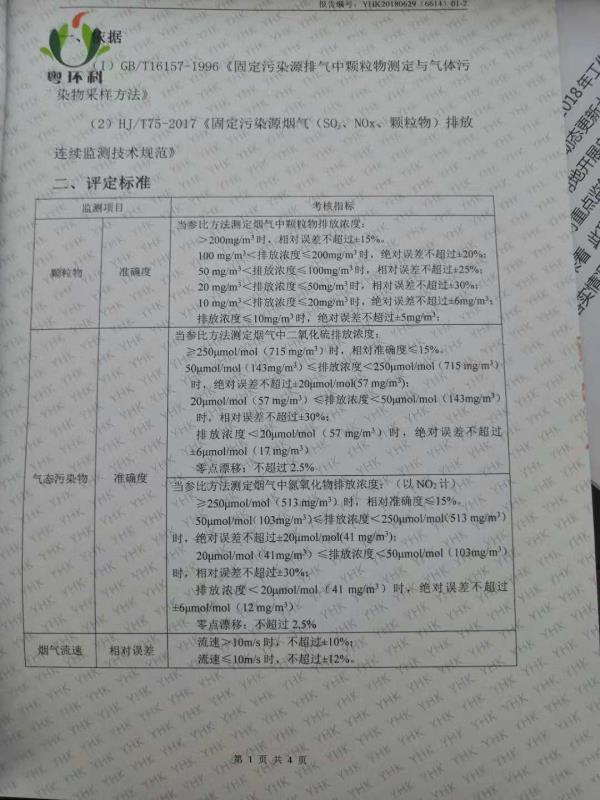 报告编号: YHK20180629 (6614) 01-2
一、依据
粤环科
(1) GB/T16157-1996《固定污染源排气中颗粒物测定与气体污
染物采样方法》
(2) HJ/T75-2017《固定污染源烟气（SO₂、NOx、颗粒物）排放
连续监测技术规范》
二、评定标准
监测项目 考核指标
颗粒物 准确度
当参比方法测定烟气中颗粒物排放浓度：
＞200mg/m³时，相对误差不超过±15%。
100 mg/m³<排放浓度≤200mg/m³时，绝对误差不超过±20%；
50 mg/m³<排放浓度≤100mg/m³时，相对误差不超过±25%；
20 mg/m³<排放浓度≤50mg/m³时，相对误差不超过±30%；
10 mg/m³<排放浓度≤20mg/m³时，绝对误差不超过±6mg/m³；
排放浓度≤10mg/m³时，绝对误差不超过±5mg/m³；
气态污染物 准确度
当参比方法测定烟气中二氧化硫排放浓度：
≥250μmol/mol（715 mg/m³）时，相对准确度≤15%。
50μmol/mol（143mg/m³）≤排放浓度＜250μmol/mol（715 mg/m³）
时，绝对误差不超过±20μmol/mol(57 mg/m³)；
20μmol/mol（57 mg/m³）≤排放浓度＜50μmol/mol（143mg/m³）
时，相对误差不超过±30%；
排放浓度＜20μmol/mol（57 mg/m³）时，绝对误差不超过
±6μmol/mol（17 mg/m³）
零点漂移：不超过 2.5%
当参比方法测定烟气中氮氧化物排放浓度：（以 NO₂计）
≥250μmol/mol（513 mg/m³）时，相对准确度≤15%。
50μmol/mol(103mg/m³)≤排放浓度＜250μmol/mol(513 mg/m³)
时，绝对误差不超过±20μmol/mol(41 mg/m³)；
20μmol/mol（41mg/m³）≤排放浓度＜50μmol/mol（103mg/m³）
时，相对误差不超过±30%；
排放浓度＜20μmol/mol（41 mg/m³）时，绝对误差不超过
±6μmol/mol（12 mg/m³）
零点漂移：不超过 2.5%
烟气流速 相对误差
流速＞10m/s 时，不超过±10%；
流速≤10m/s 时，不超过±12%。
第 1 页 共 4 页